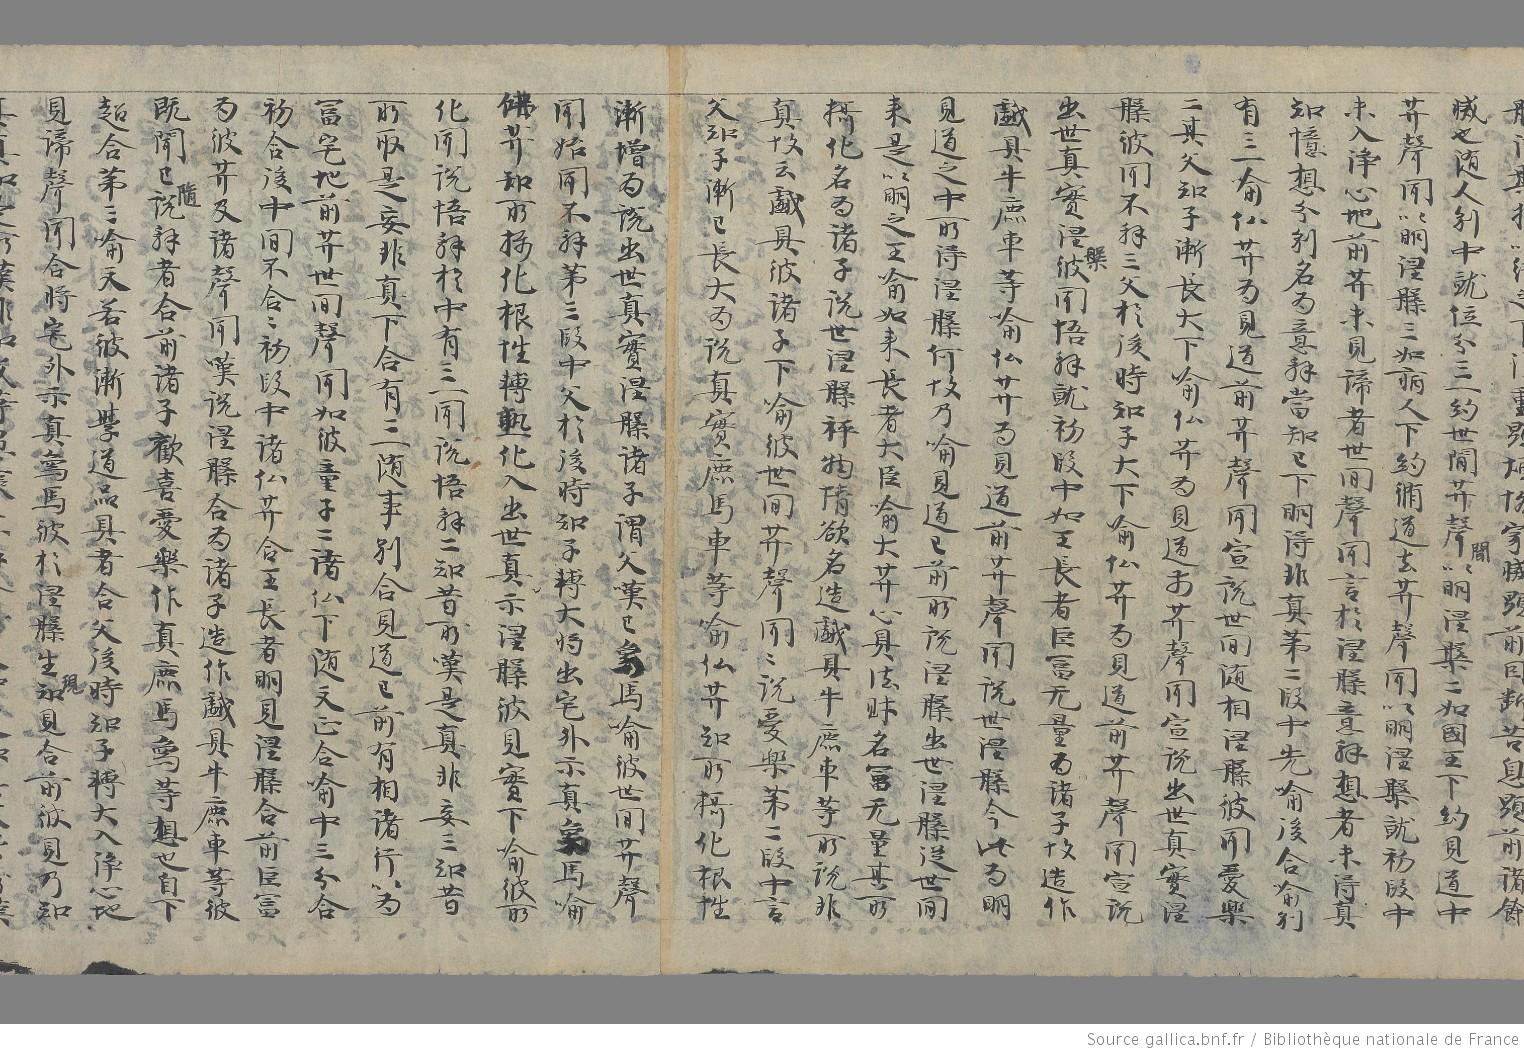 滅也随人別中就位分三一約世間菩聲聞以明涅槃二如國王下約見道中
菩聲聞以明涅槃三如病人下約徧道去菩聲聞以明涅槃就初段中
未入淨心地前菩未見諦者世間聲聞言於涅槃意解想者未得真
知憶想分別名為意解當知已下明得非真第二段中先喻後合喻別
有三一喻仏菩為見道前菩聲聞宣說世間随相涅槃彼聞愛樂
二其父知子漸長大下喻仏菩為見道前菩聲聞宣說出世真實涅
槃彼聞不解三父於後時知子大下喻仏菩為見道前菩聲聞宣說
出世真實涅槃彼聞悟解就初段中如王長者臣冨无量為諸子故造作
戱具牛鹿車等喻仏菩為見道前菩聲聞說世涅槃今此為明
見道之中所得涅槃何故乃喻見道已前所說涅槃出世涅槃從世間
来是以明之王喻如来長者大臣喻大菩心具法財名冨无量其所
攝化名為諸子說世涅槃稱物情欲名造戱具牛鹿車等所說非
真故云戱具彼諸子下喻彼世間菩聲聞聞說愛樂第二段中言
父知子漸已長大為說真實鹿馬車等喻仏菩知所攝化根性
漸增為說出世真實涅槃諸子謂父嘆已象馬喻彼世間菩聲
聞始聞不解第三段中父於後時知子轉大將出宅外示真象馬喻
佛菩知所攝化根性轉熟化入出世真示涅槃彼見實下喻彼所
化聞說悟解於中有三一聞說悟解二知昔所嘆是真非妄三知昔
所取是妄非真下合有二一随事別合見道已前有相諸行以為
冨宅地前菩世間聲聞如彼童子二諸仏下随文正合喻中三分合
初合後中間不合合初段中諸仏菩合王長者明見涅槃合前臣冨
為彼菩及諸聲聞嘆說涅槃合為諸子造作戱具牛鹿車等彼
既聞已随說解者合前諸子歡喜愛樂作真鹿馬象等想也自下
超合第三喻文若彼漸學道品具者合父後時知子轉大入淨心地
見諦聲聞合將宅外示真象馬彼於涅槃生現知見合前彼見乃知